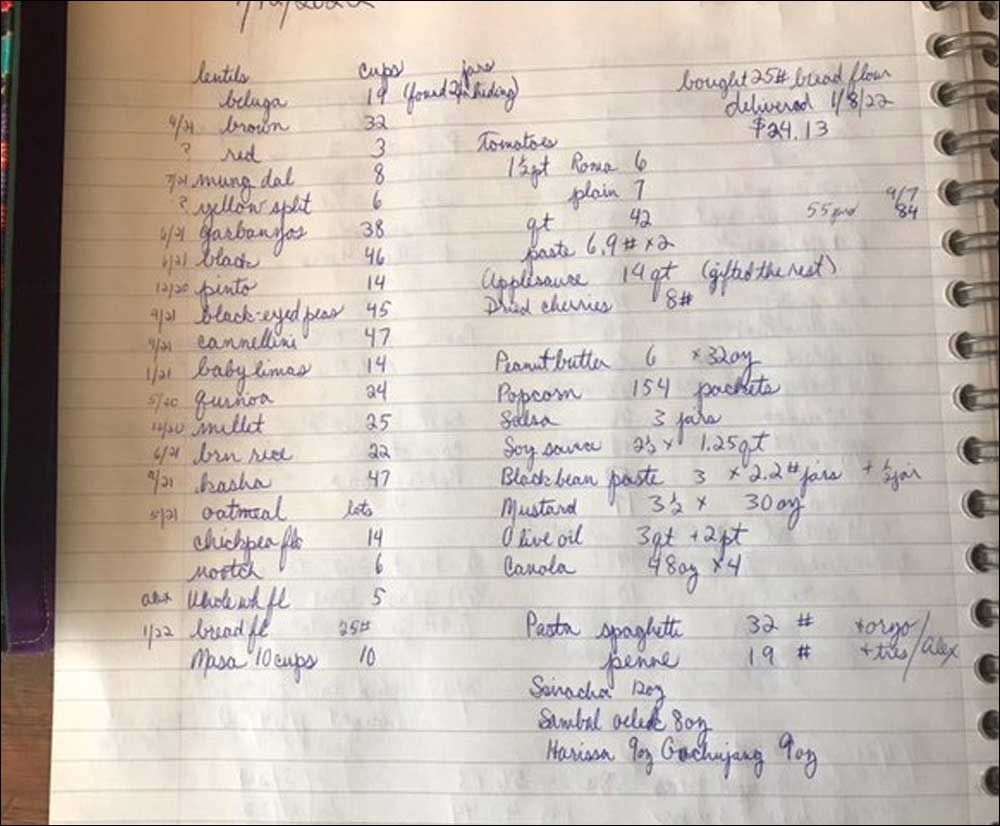 lentils cups jars
beluga 19 (found 2 in hiding)
4/21 brown 32
? red 3
7/21 mung dal 8
? yellow split 6
6/21 garbanzos 38
6/21 black 46
12/20 pinto 14
9/21 black-eyed peas 45
9/21 cannellini 47
1/21 baby limas 14
5/20 quinoa 24
12/20 millet 25
6/21 brn rice 22
9/21 kasha 47
5/21 oatmeal lots
chickpea fl 14
nootch 6
alex Whole wh fl 5
1/22 bread fl 25#
Masa 10 cups 10
bought 25# bread flour
delivered 1/8/22
$24.13
Tomatoes
1½ pt Roma 6
plain 7
9/7
qt 42 55 84
paste 6.9# x2
Applesauce 14 qt (gifted the rest)
Dried cherries 8#
Peanut butter 6 x 32oz
Popcorn 154 packets
Salsa 3 jars
Soy sauce 2½ x 1.25qt
Black bean paste 3 x 2.2# jars + ½ jar
Mustard 3½ x 30 oz
Olive oil 3qt + 2pt
Canola 48oz x 4
Pasta spaghetti 32 # + orzo
penne 19 # + tres / alex
Sriracha 12oz
Sambal oelek 8oz
Harissa 9oz Gochujang 9oz